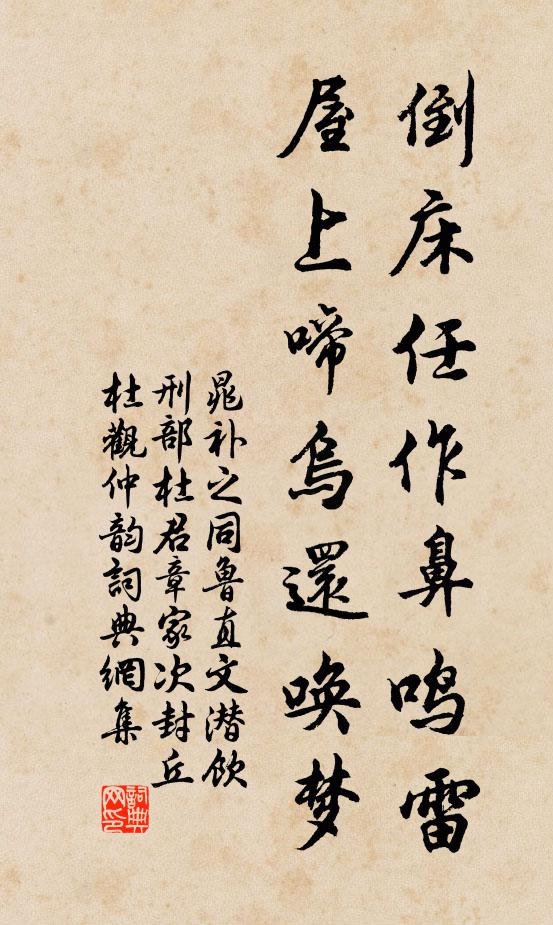 倒床任作鼻鸣雷
屋上啼烏還唤梦
晁补之同鲁直文潜饮
刑部杜君章家次封丘
杜觀仲韵詞典網集
詞典
网印